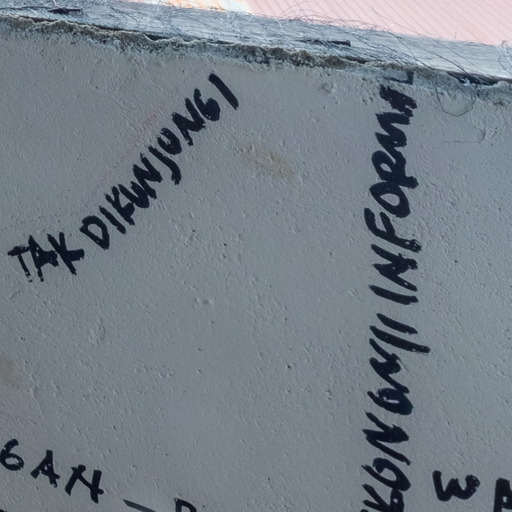 TAK DIKUNJUNGI
KONOMI INFORMAL
GAN -